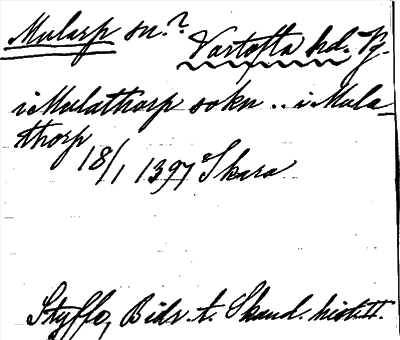 Mularp sn.? Vartofta hd. Vg.
i Mulathorp sokn .. i Mula-
thorp
18/1 1397 Skara
Styffe, Bidr. t. Skand. hist. II.